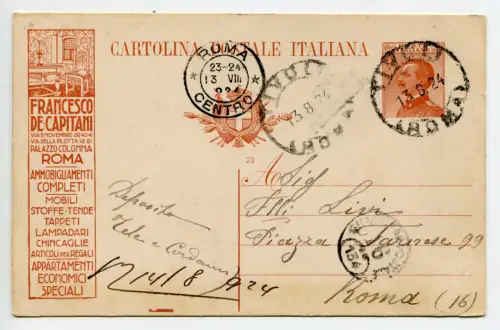 CARTOLINA POSTALE ITALIANA
ROMA
23-24
13 VIII
924
CENTRO
TIVOLI
13.8.24
(ROMA)
TIVOLI
13.8.24
(ROMA)
FRANCESCO
DE CAPITANI
VIA DELLA PILOTTA 18-21
PALAZZO COLONNA
ROMA
AMMOBIGLIAMENTI
COMPLETI
MOBILI
STOFFE-TENDE
TAPPETI
LAMPADARI
CHINCAGLIE
ARTICOLI PER REGALI
APPARTAMENTI
ECONOMICI
SPECIALI
23
A Sig
Flli Livi
Piazza Farnese 99
Roma (16)
Deposito
Tele e Cordami
14/8 924